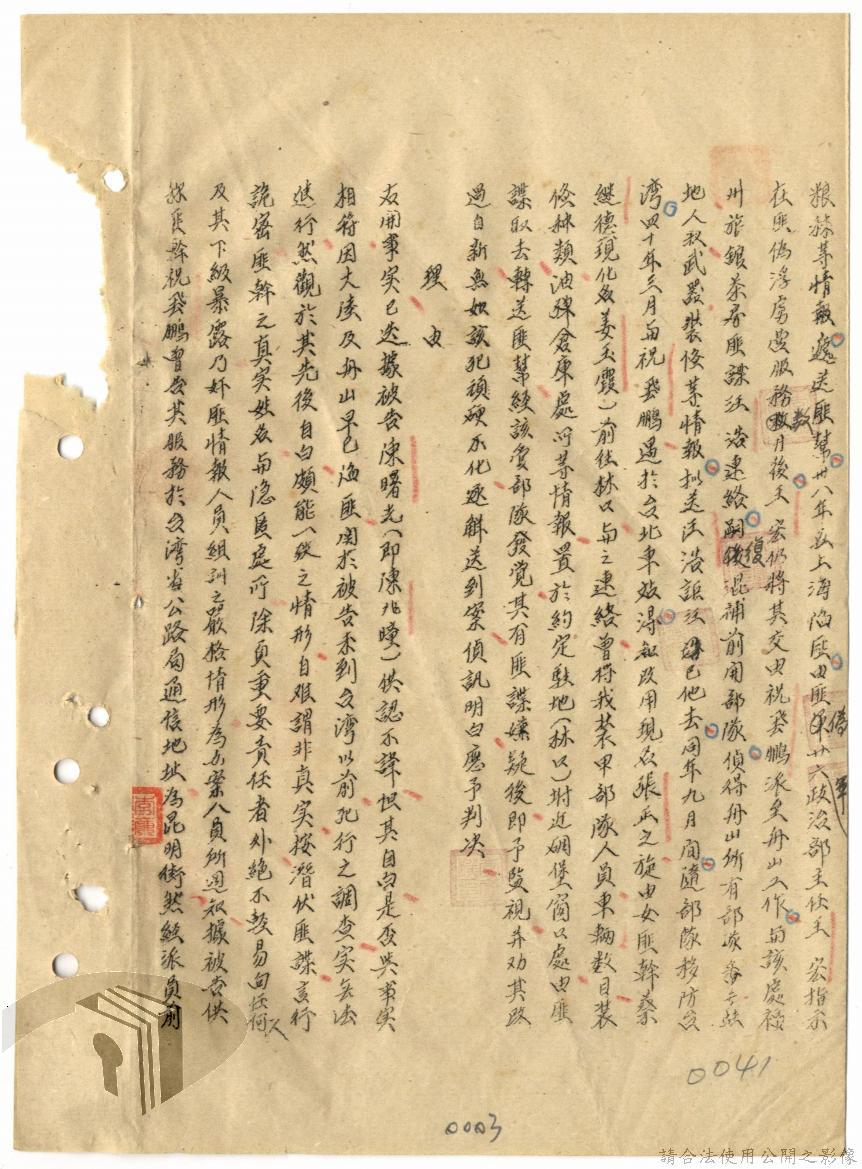 粮秣等情報遞送匪幫卅八年五上海陷匪由匪偽軍廿六政治部主任王宏指示
在匪偽浮虜營服務數月後王宏仍將其交由祝飛鵬派至舟山工作與該處祿
州旅館茶房匪諜汪浩連絡嗣復混補前開部隊偵得舟山所有部隊番號駐
地人数武器裝俻等情報拟送汪浩詎汪已他去同年九月間隨部隊移防台
湾四十年三月與祝飛鵬遇於台北車站得知改用現名張正之旋由女匪幹蔡
繼德現化名姜玉霞)前往林口與之連絡曾将我装甲部隊人員車輛数目装
俻種類油彈倉庫處所等情報置於約定駐地(林口)附近碉堡窗口處由匪
諜取去轉送匪幫經該管部隊發覺其有匪諜嫌疑後即予監視并劝其改
過自新無如該犯頑硬不化逐解送到案偵訊明白應予判决
理由
右開事实已迭據被告陳曙光(即陳兆瞳)供認不諱惟其自白是否與事实
相符因大陸及舟山早已淪匪関於被告未到台湾以前犯行之調查实無法
進行然觀於其先後自白頗能一致之情形自难謂非真实按潛伏匪諜言行
詭密匪幹之真实姓名與隐匿處所除負重要責任者外絕不輕易向任何人
及其下級暴露乃奸匪情報人員組訓之嚴格情形為辦案人員所週知據被告供
録匪幹祝飛鵬曾告其服務於台湾省公路局通信地址為昆明街然經派員前
0041
0003
請合法使用公開之影像